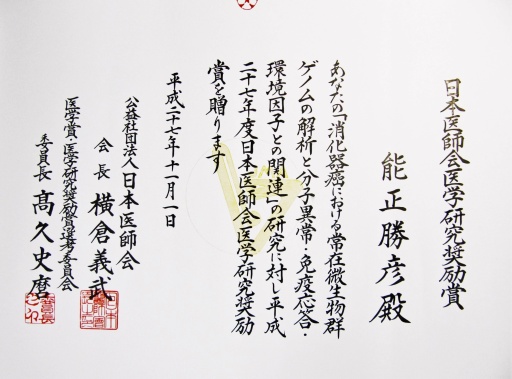 日本医師会医学研究奨励賞
能正勝彦殿
あなたの「消化器癌における常在微生物群
ゲノムの解析と分子異常・免疫応答・
環境因子との関連」の研究に対し平成
二十七年度日本医師会医学研究奨励
賞を贈ります
平成二十七年十一月一日
公益社団法人日本医師会
会長 横倉義武
医学賞・医学研究奨励賞選考委員会
委員長 髙久史麿